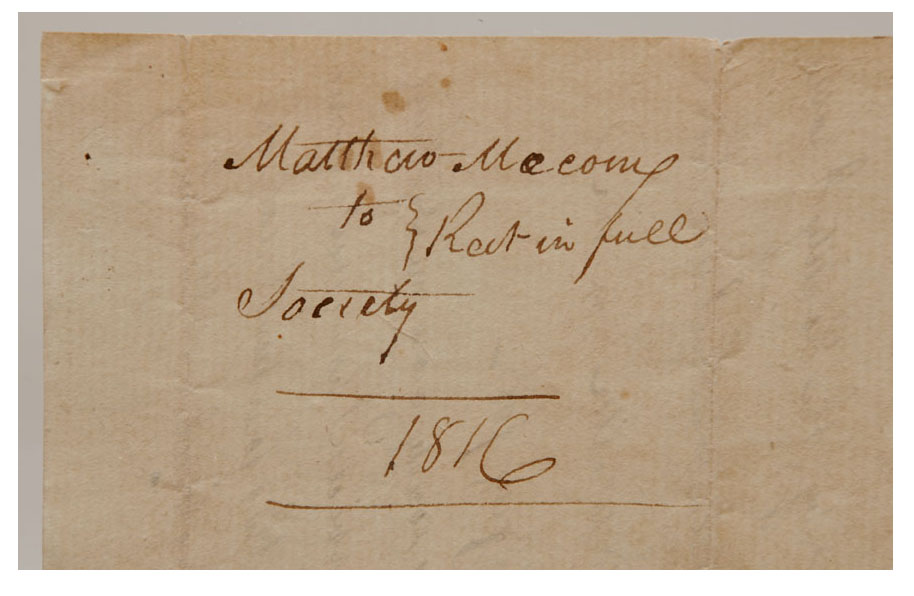 Matthew Macomy
to } Rect in full
Society
1816